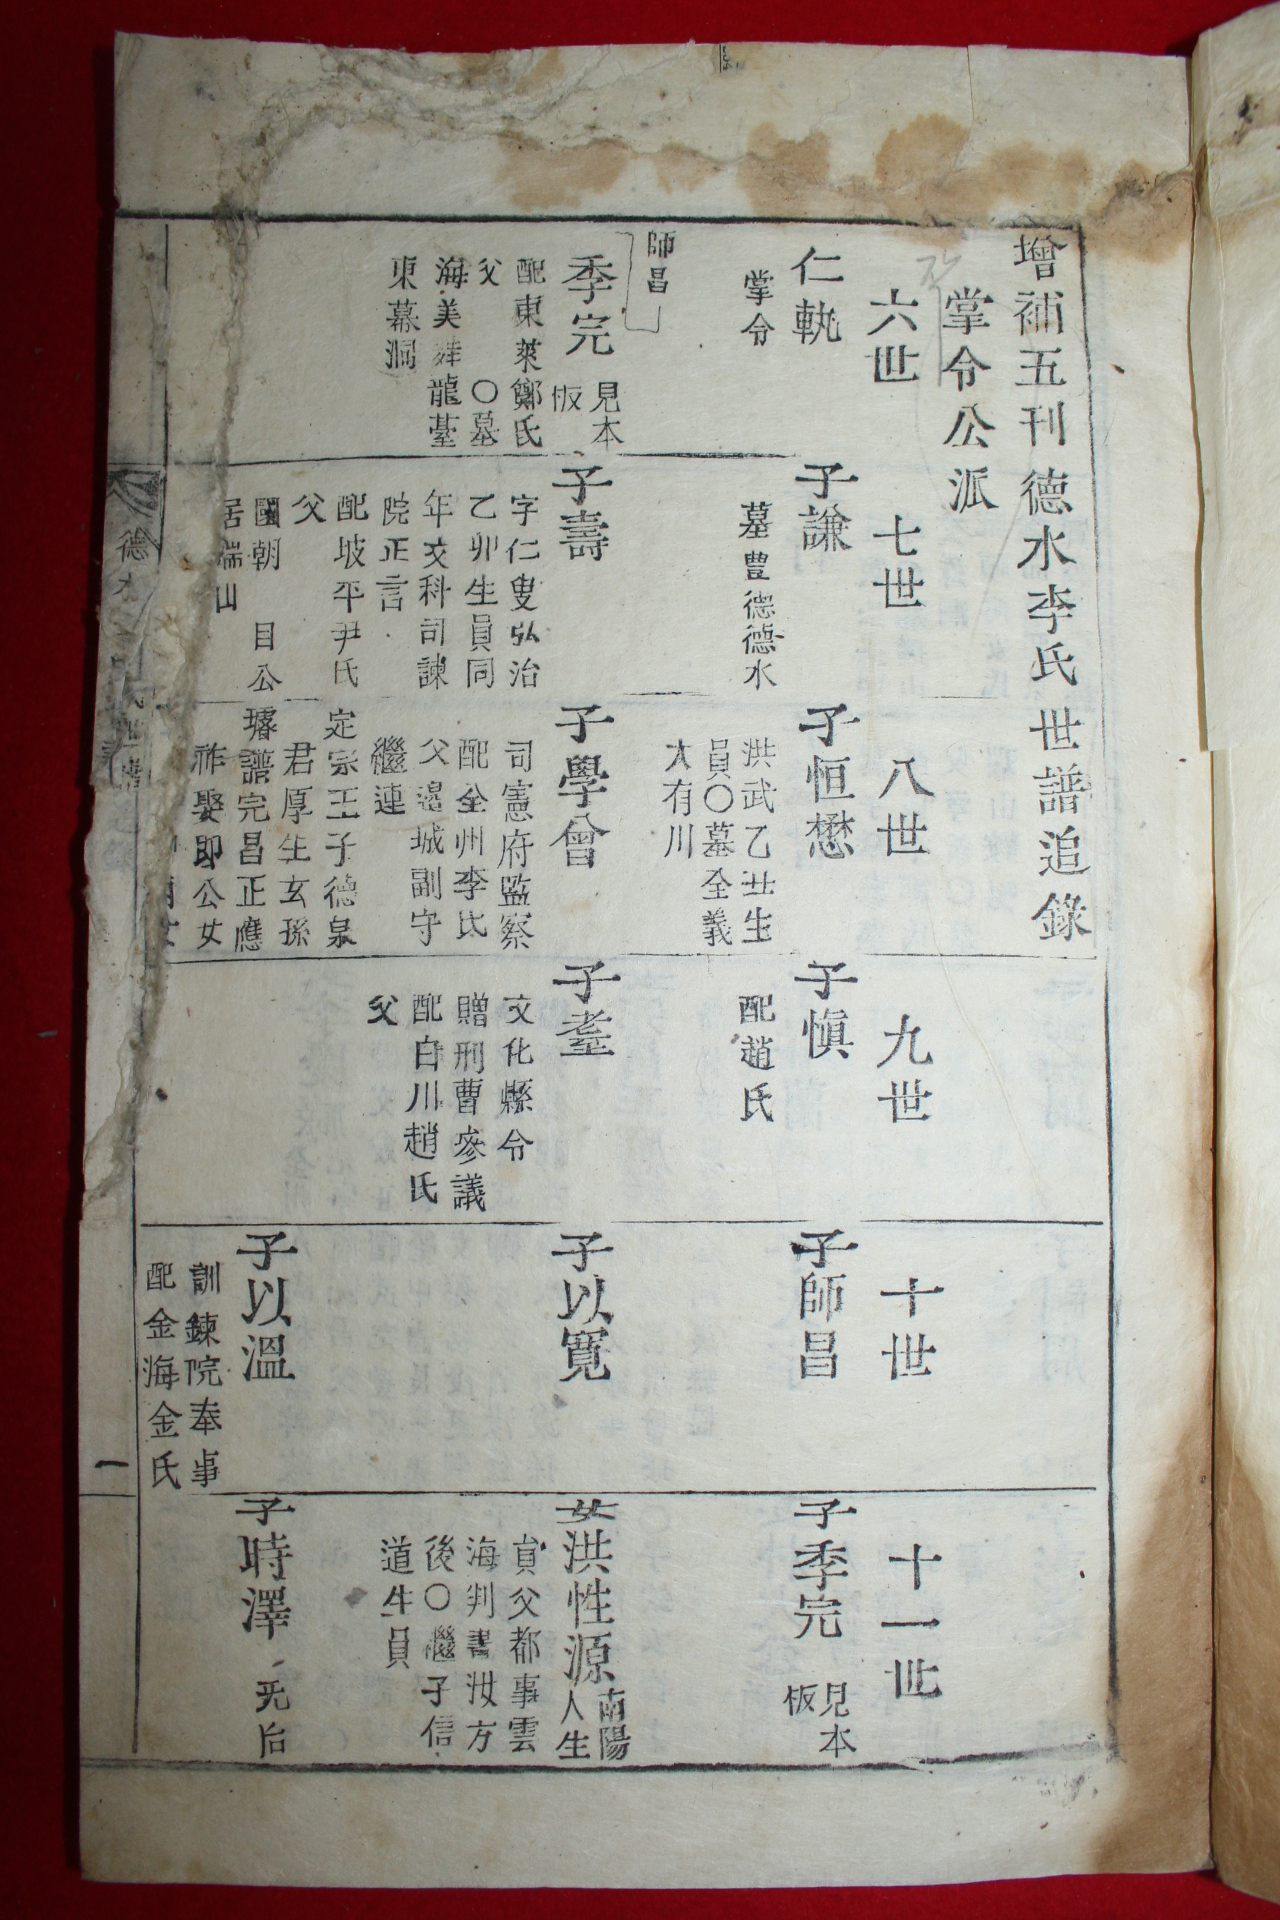 增補五刊德水李氏世譜追錄
掌令公派
六世
七世
八世
九世
十世
十一世
仁執
掌令
子謙
墓豊德德水
子恒懋
洪武乙丑生
員〇墓全義
大有川
子愼
配趙氏
子師昌
子季完
見本
板
師昌
季完
見本
板
配東萊鄭氏
父 〇墓
海美 龍臺
東幕洞
子壽
字仁叟弘治
乙卯生員同
年文科司諫
院正言
配坡平尹氏
父
國朝 目公
居瑞山
子學曾
司憲府監察
配全州李氏
父邊城副守
繼連
定宗王子德泉
君厚生玄孫
璿譜完昌正應
祚娶即公女
子耋
文化縣令
贈刑曹參議
配白川趙氏
父
子以寬
女洪性源
南陽
人生
貟父都事雲
海判書汝方
後〇繼子信
道生員
子以溫
訓鍊院奉事
配金海金氏
子時澤
无后
德水
一